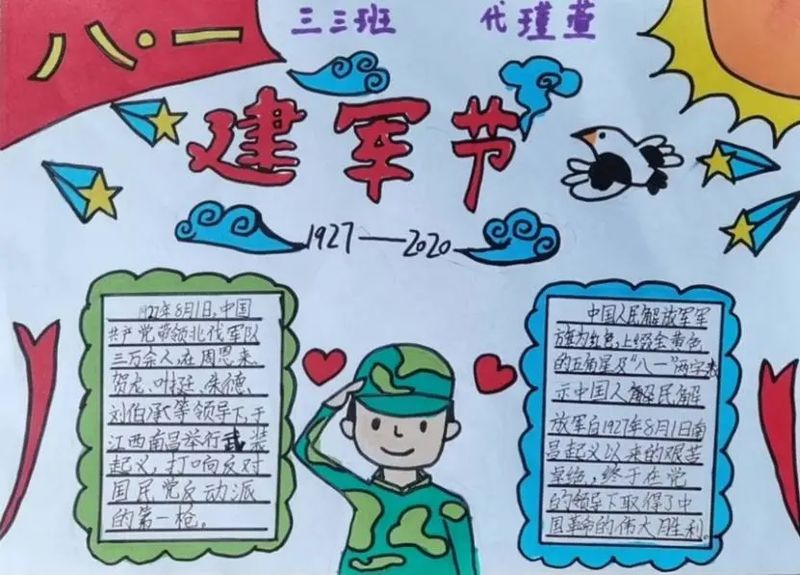 八·一
三三班 代瑾萱
建军节
1927—2020
1927年8月1日,中国
共产党带领北伐军队
三万余人,在周恩来、
贺龙、叶挺、朱德、
刘伯承等领导下,于
江西南昌举行武装
起义,打响反对
国民党反动派
的第一枪。
中国人民解放军军
旗为红色,上缀金黄色
的五角星及“八一”两字表
示中国人解民解
放军自1927年8月1日南
昌起义以来的艰苦
卓绝,终于在党
的领导下取得了中
国革命的伟大胜利。